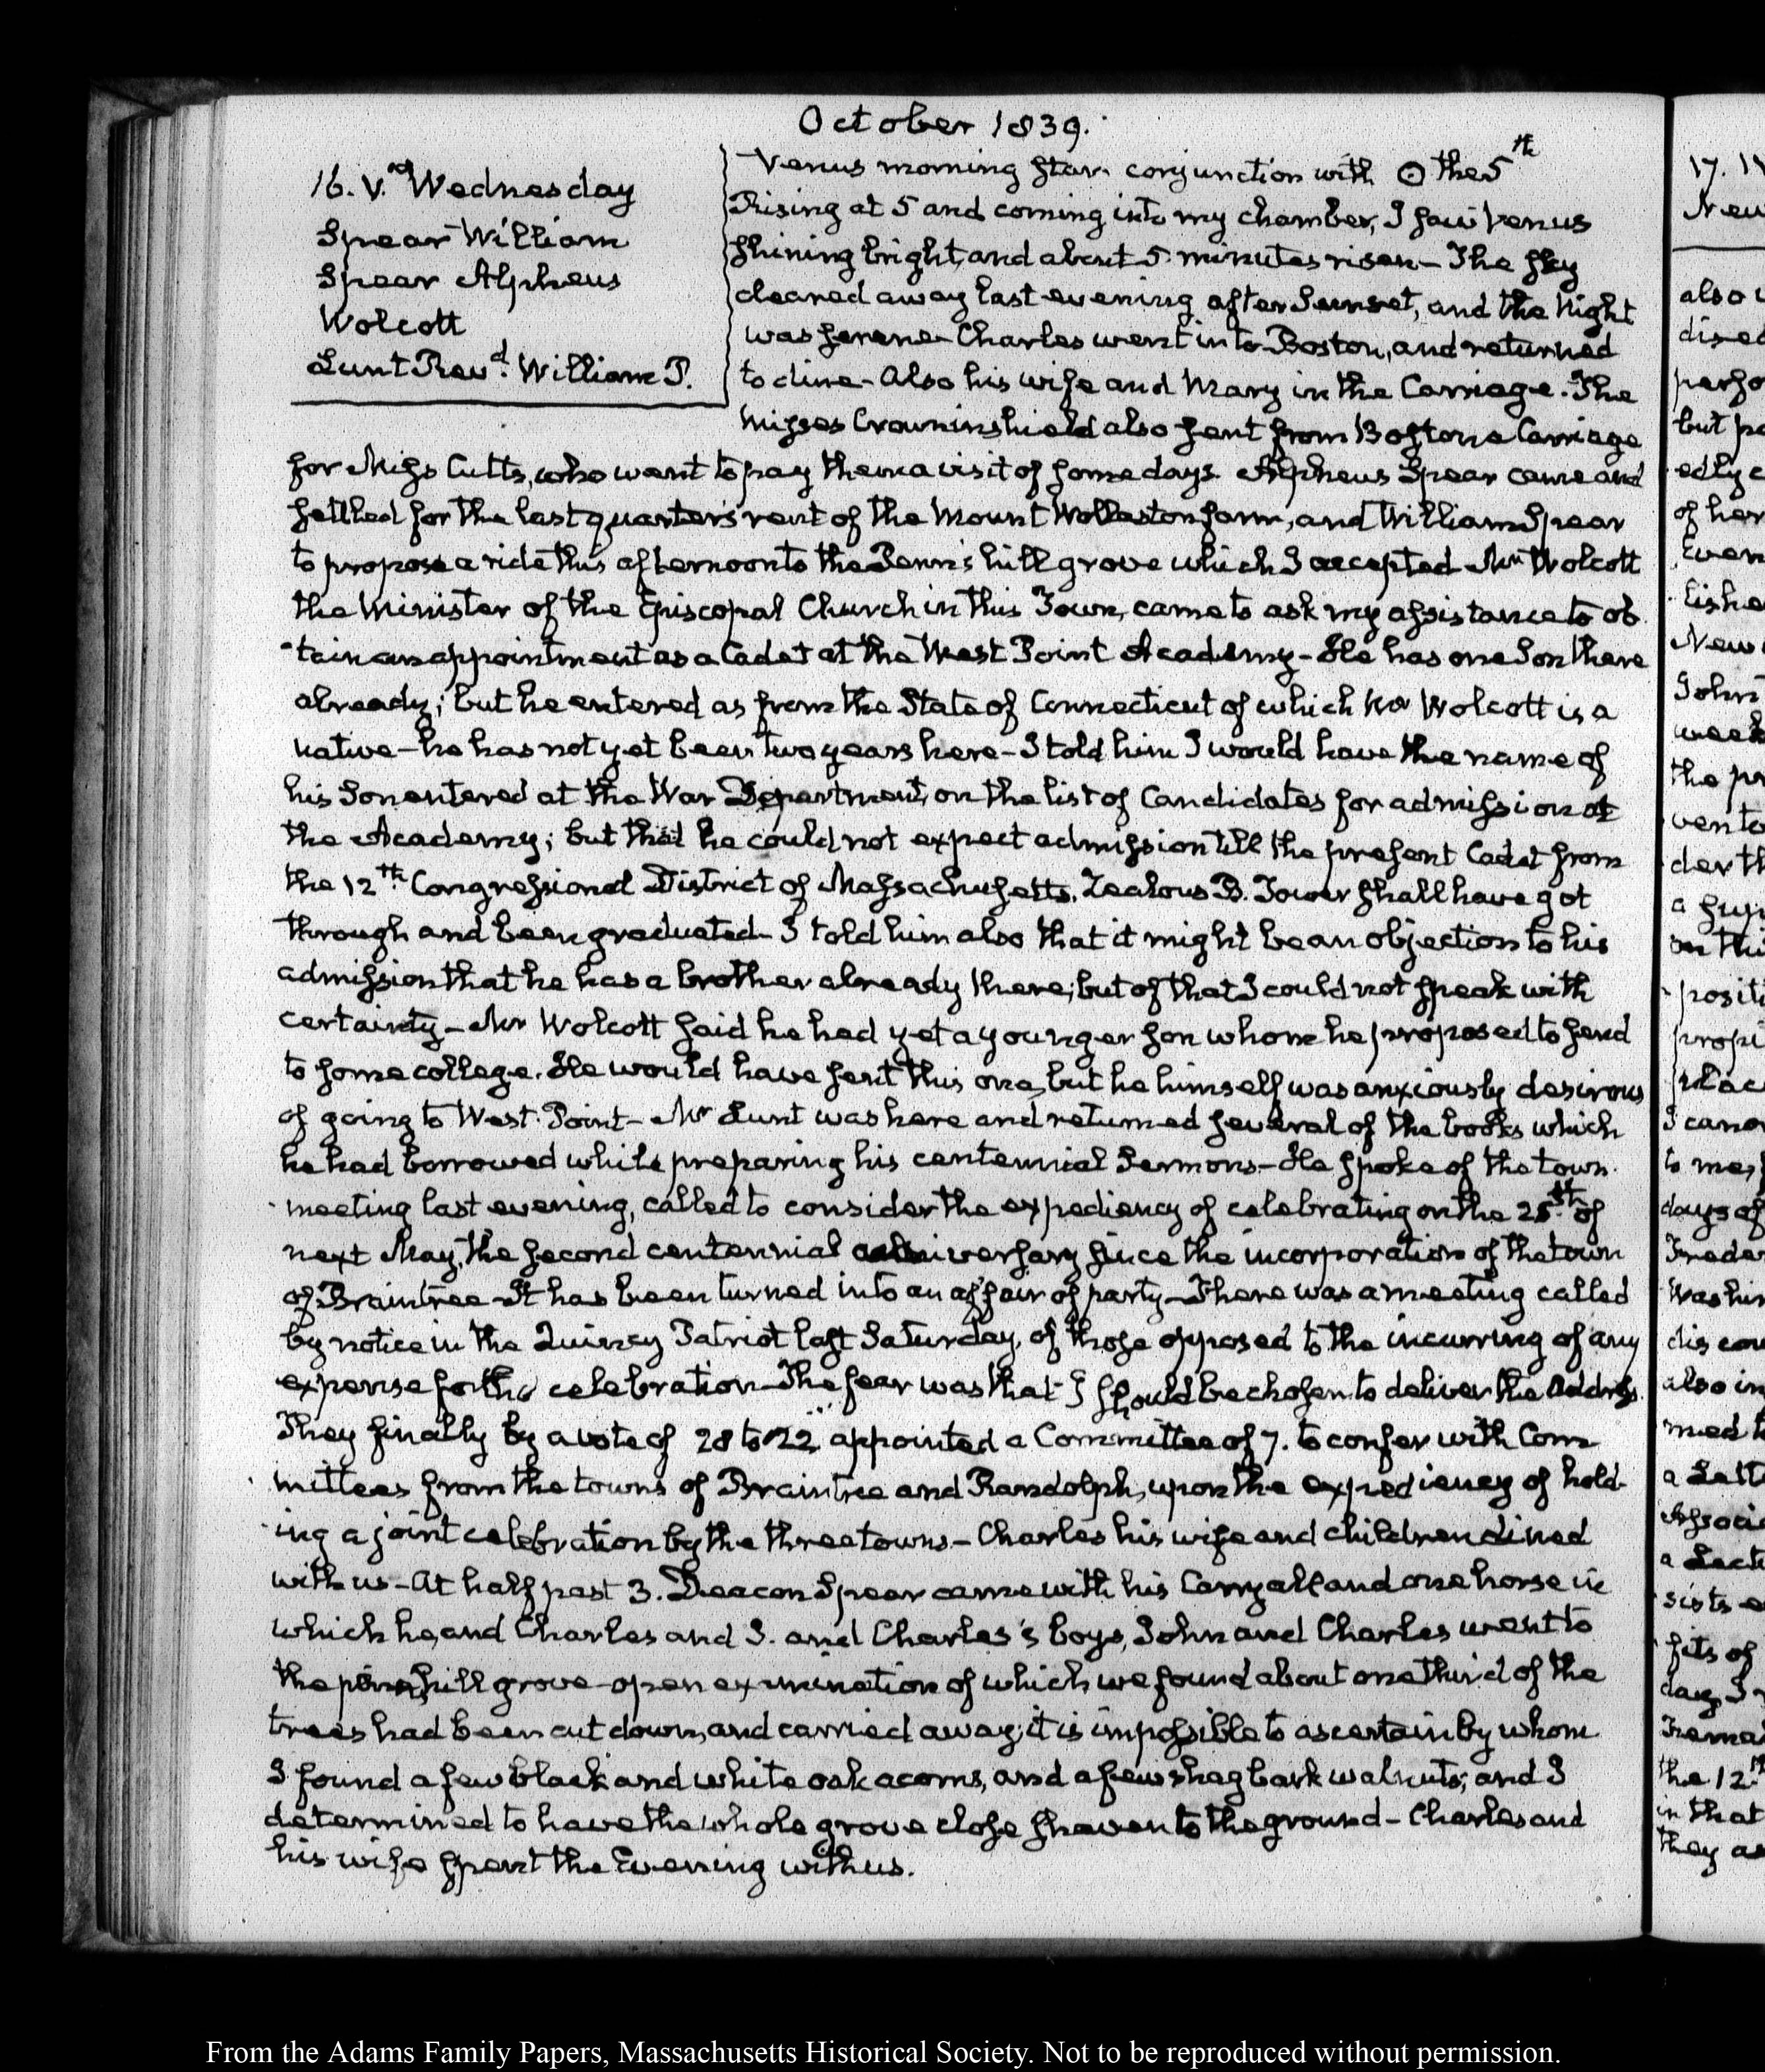 October 1839.
16. V. Wednesday
Spear William
Spear Alpheus
Wolcott
Lunt Revd. William P.
Venus morning star. conjunction with ☉ the 5th
Rising at 5 and coming into my chamber, I saw Venus
shining bright, and about 5 minutes risen – The sky
cleared away last evening after Sunset, and the Night
was serene – Charles went into Boston, and returned
to dine – Also his wife and Mary in the Carriage. The
Misses Crowninshield also sent from Boston a Carriage
for Miss Cutts, who went to pay them a visit of some days. Alpheus Spear came and
settled for the last quarter's rent of the Mount Wollaston farm, and William Spear
to propose a ride this afternoon to the Penn's hill grove which I accepted – Mr Wolcott
the Minister of the Episcopal Church in this Town, came to ask my assistance to ob
tain an appointment as a Cadet at the West Point Academy – He has one Son there
already; but he entered as from the State of Connecticut of which Mr Wolcott is a
native – he has not yet been two years here – I told him I would have the name of
his Son entered at the War Department, on the list of Candidates for admission at
the Academy; but that he could not expect admission till the present Cadet from
the 12th Congressional District of Massachusetts, Zealous B. Tower shall have got
through and been graduated – I told him also that it might be an objection to his
admission that he has a brother already there; but of that I could not speak with
certainty – Mr Wolcott said he had yet a younger son whom he proposed to send
to some college. He would have sent this one, but he himself was anxiously desirous
of going to West-Point – Mr Lunt was here and returned several of the books which
he had borrowed while preparing his centennial Sermons – He spoke of the town
meeting last evening, called to consider the expediency of celebrating on the 25th of
next May, the second centennial anniversary since the incorporation of the town
of Braintree – It has been turned into an affair of party – There was a meeting called
by notice in the Quincy Patriot last Saturday, of those opposed to the incurring of any
expense for the celebration – The fear was that I should be chosen to deliver the Address.
They finally by a vote of 28 to 22 appointed a Committee of 7. to confer with Com
mittees from the towns of Braintree and Randolph, upon the expediency of hold
ing a joint celebration by the three towns – Charles his wife and children dined
with us – At half past 3. Deacon Spear came with his Carryall and one horse in
which he, and Charles and I. and Charles's boys, John and Charles went to
the penn's hill grove – open examination of which we found about one third of the
trees had been cut down, and carried away; it is impossible to ascertain by whom
I found a few black and white oak acorns, and a few shagbark walnuts; and I
determined to have the whole grove close shaven to the ground – Charles and
his wife spent the Evening with us.
17.
New
also
dis
perso
but
edly
of her
Even
lishe
New
John
week
the
vente
der th
a
on thi
positi
propi
plac
I can
to me,
days of
Frede
Washin
dis con
also in
med t
a Lett
Associ
a Lect
sists
fits of
day, I
Remai
the 12
in that
they as
From the Adams Family Papers, Massachusetts Historical Society. Not to be reproduced without permission.